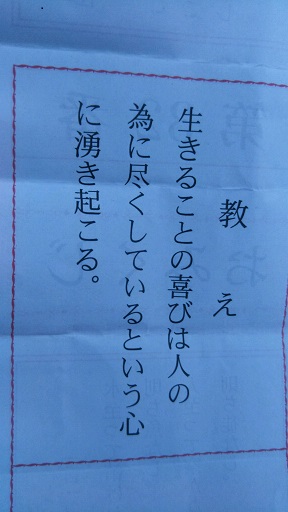 教え
生きることの喜びは人の
為に尽くしているという心
に湧き起こる。